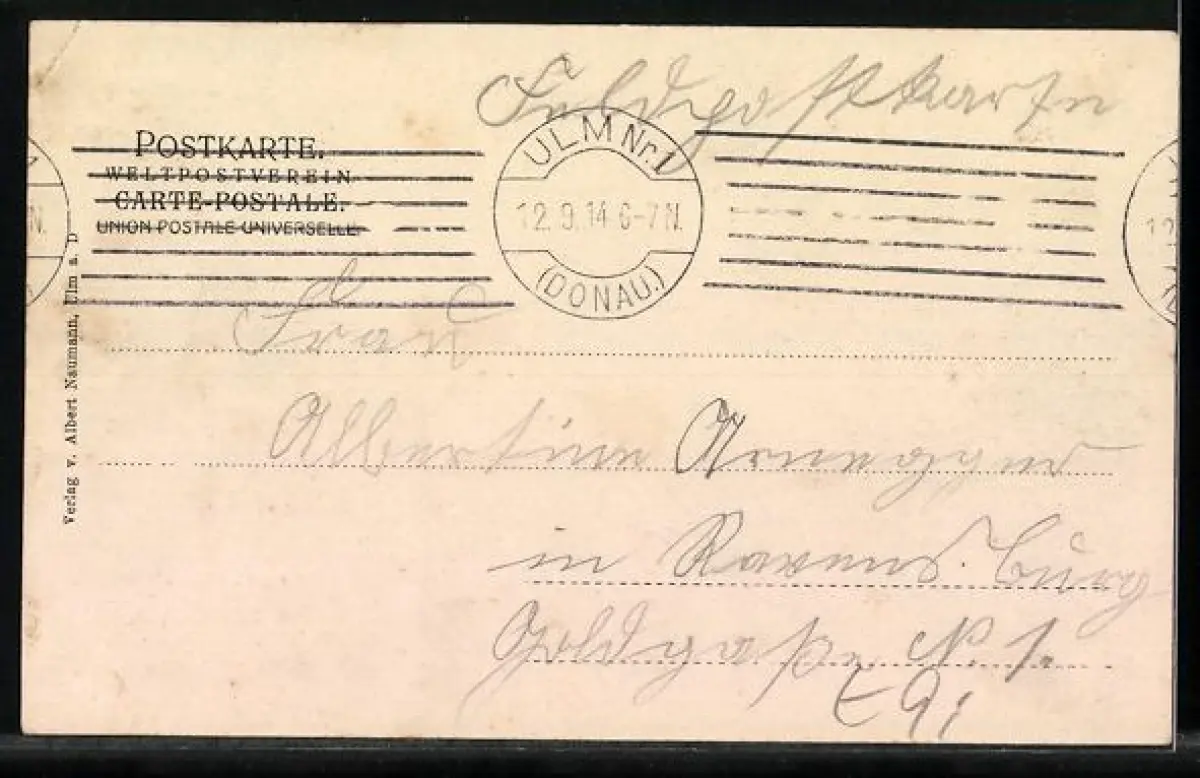 Feldpostkarte
POSTKARTE.
WELTPOSTVEREIN
CARTE-POSTALE.
UNION POSTALE UNIVERSELLE
ULM Nr. 1
12.9.14 6-7 N.
(DONAU.)
Frau
Albertine
in Ravensburg
Goldgaße N. 1.
Verlag v. Albert Naumann, Ulm a. D